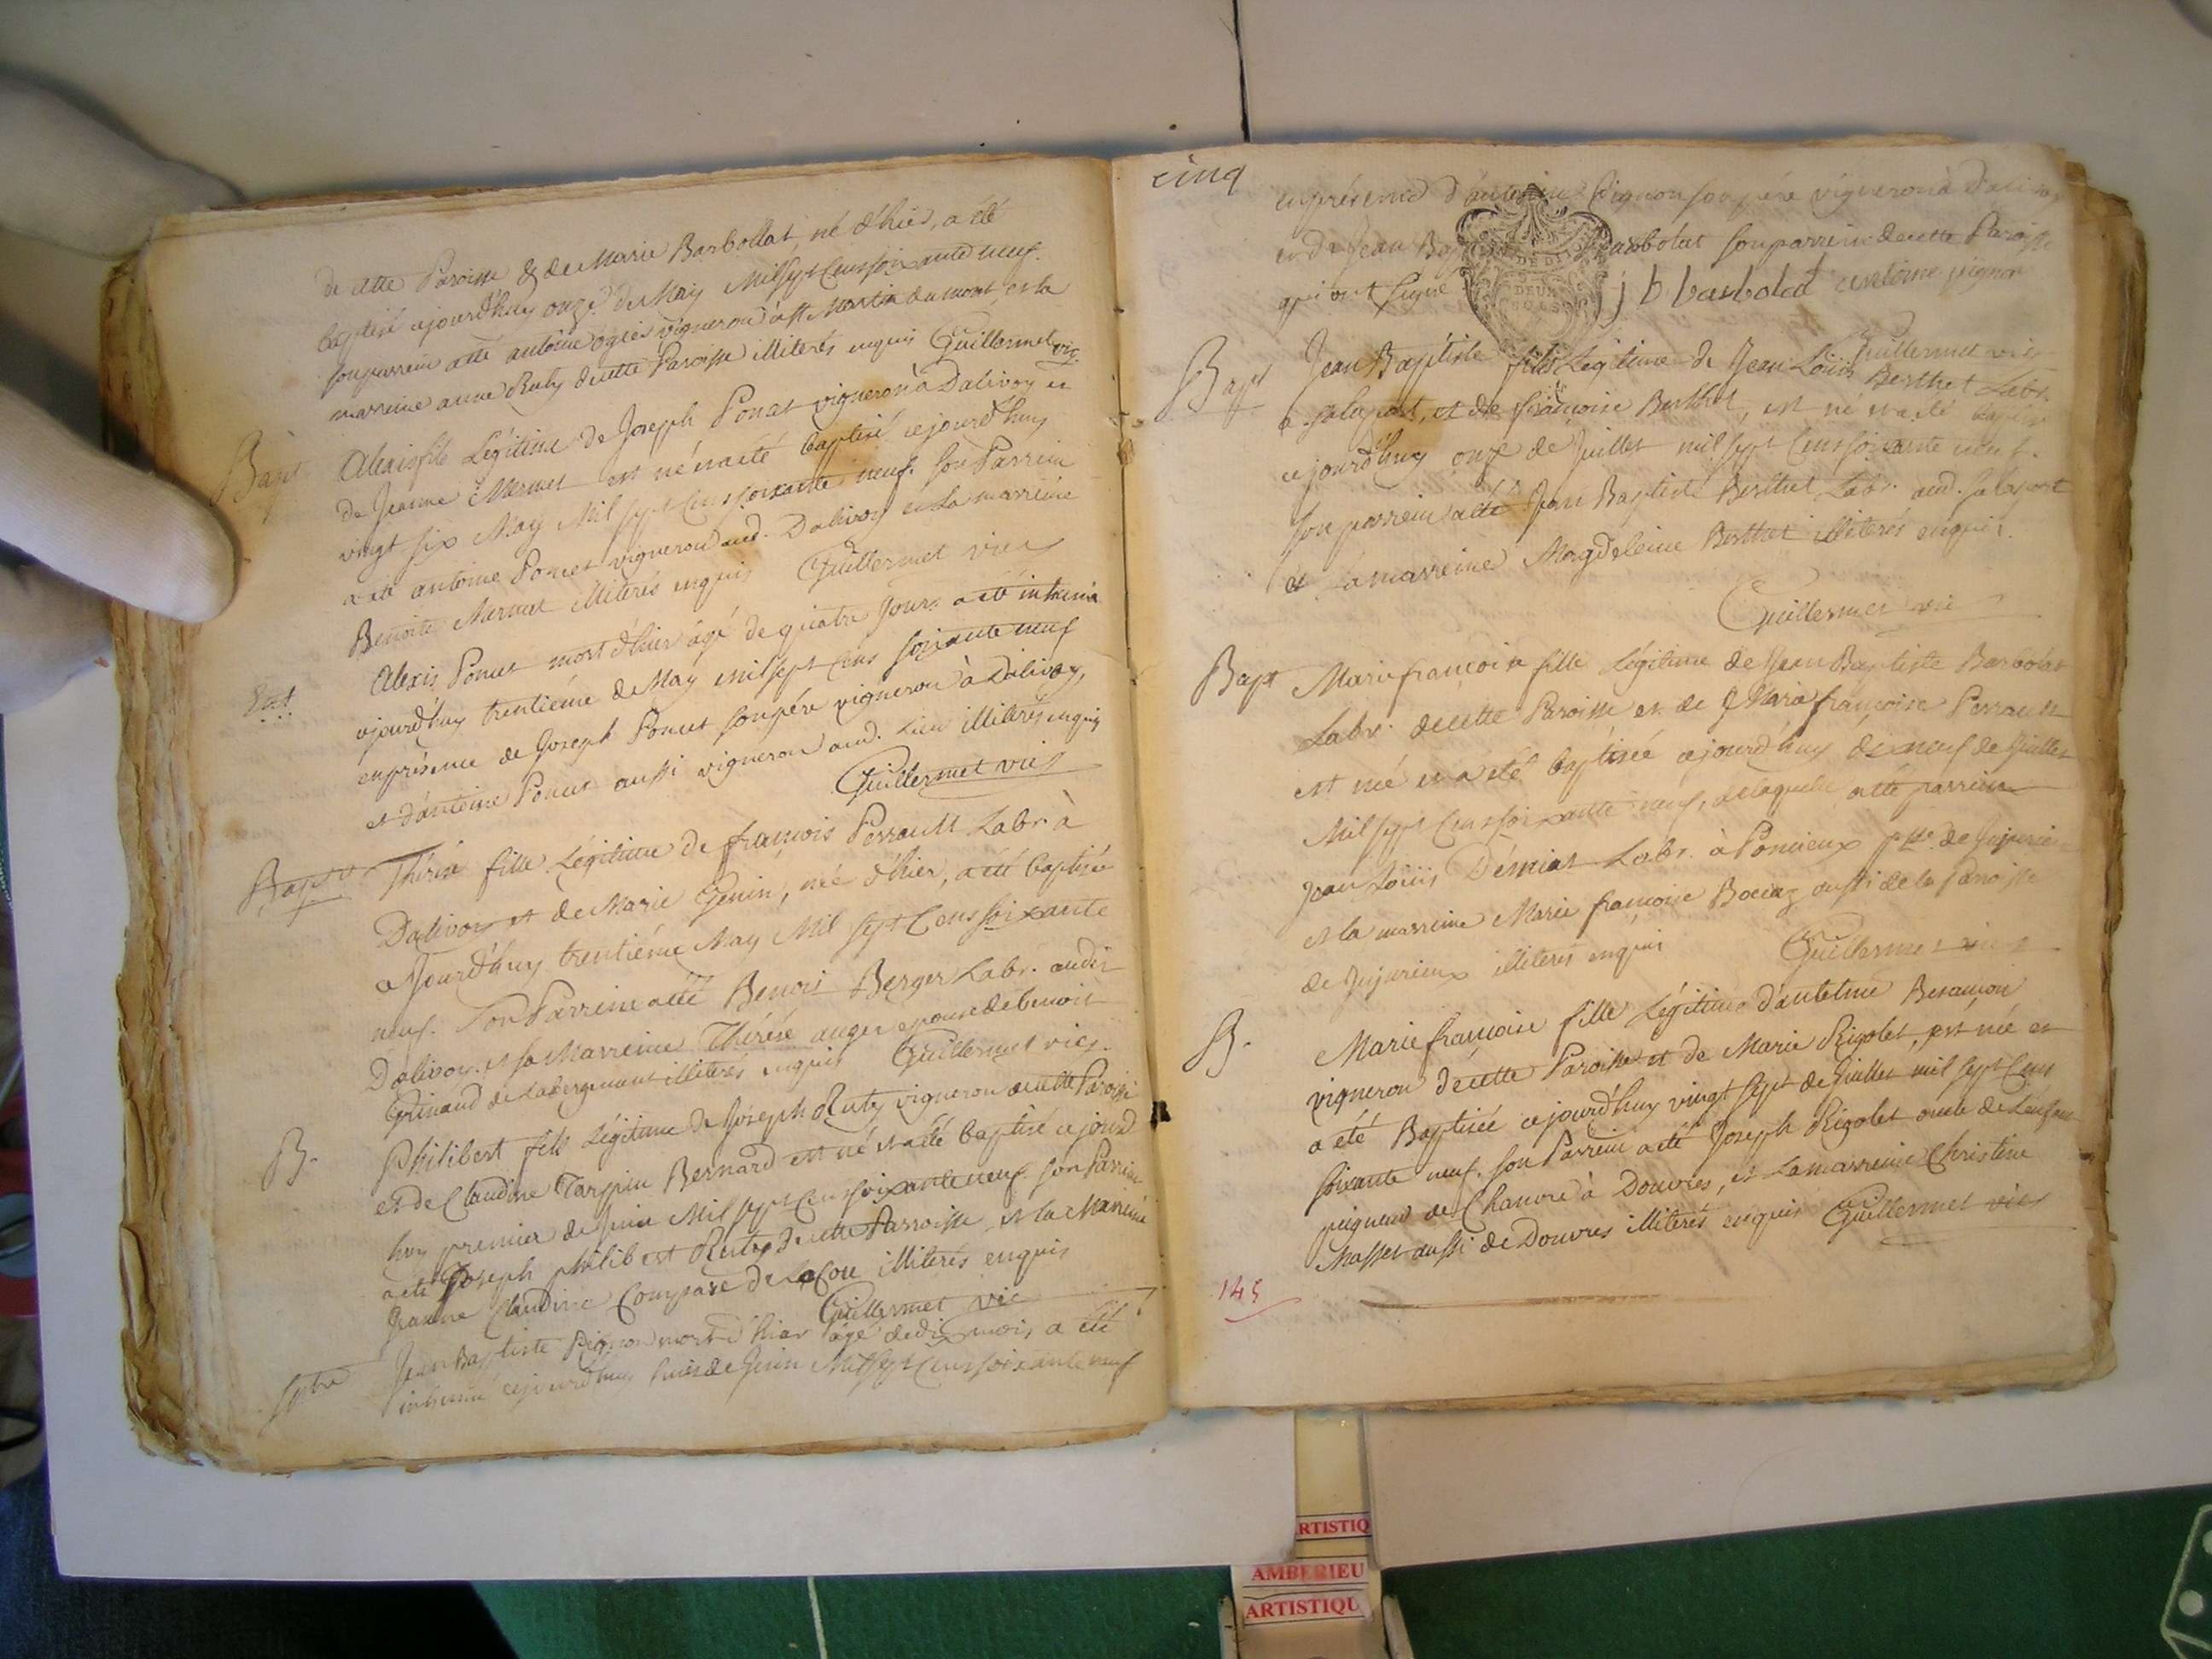 de cette Paroisse & de Marie Barbollat, né d'hier, a été
baptisé ajourdhuy onze de May Mil sept Cens soixante neuf.
son parrein a été antoine ogier vigneron à st Martin du mont, et la
marreine anne Ruty de cette Paroisse illiterés enquis Guillermet vic.
Bapt
Alexis fils Légitime de Joseph Poncet vigneron à Dalivoy et
de Jeanne Mermet est né et a été baptisé cejourd'huy
vingt six May Mil sept Cens soixante neuf. son Parrein
a été antoine Poncet vigneron aud. Dalivoy et la marreine
Benoite Mermet illiterés enquis Guillermet vic
Ent
Alexis Poncet mort d'hier âgé de quatre Jours a été inhumé
ajourd'huy trentiéme de May Mil sept Cens soixante neuf
en présence de Joseph Poncet son pére vigneron à Dalivoy,
et d'antoine Poncet aussi vigneron aud. Lieu illiterés enquis
Guillermet vic
Bapt
Thérése fille Légitime de françois Perrault Labr. à
Dalivoy et de Marie Genin, née d'hier, a été baptisée
ajourd'huy trentiéme May Mil sept Cens soixante
neuf. Son Parrein a été Benoit Berger Labr. audit
Dalivoy. et sa Marreine Thérése auger epouse de benoit
Grinand de Labergement illiterés enquis Guillermet vic.
B.
Philibert fils Légitime de Joseph Ruty vigneron de cette Paroisse
et de Claudine Tarpin Bernard est né et a été baptisé cejourd
huy premier de Juin Mil sept Cens soixante neuf. son Parrein
a été Joseph philibert Ruty de cette Parroisse et la Marreine
Jeanne Claudine Compare de illiterés enquis
Guillermet vic
Sptre
Jean Baptiste Pignon mort d'hier âgé de dix mois a été
inhumé cejourd'huy huit de Juin Mil sept Cens soixante neuf
cinq
en présence d'antoine Pignon son pére vigneron à Dalivoy
et de Jean Bap Barbolat son parrein de cette Paroisse
qui ont signé j b barbolat antoine pignon
DEUX
SOLS
Guillermet vic
Bapt
Jean Baptiste fils Légitime de Jean Loüis Berthet Labr.
a Salaport, et de françoise Berthet, est né et a été baptisé
cejourd'huy onze de Juillet mil sept Cens soixante neuf.
Son parrein a été Jean Baptiste Berthet Labr. aud. Salaport
et la marreine Magdeleine Berthet illiterés enquis.
Guillermet vic
Bapt
Marie françoise fille Légitime de Jean Baptiste Barbolat
Labr. de cette Paroisse et de Marie françoise Perrault
est née et a été baptisée cejourd'huy dixneuf de Juillet
Mil sept Cens soixante neuf, de laquelle a été parrein
Jean Loüis Démias Labr. à Poncieux psse. de Jujurieux
et la marreine Marie françoise Bocaz aussi de la paroisse
de Jujurieux illiterés enquis Guillermet vic
B.
Marie françoise fille Légitime d'antelme Besançon
vigneron de cette Paroisse et de Marie Rigolet, est née et
a été Baptisée cejourd'huy vingt sept de Juillet mil sept Cens
soixante neuf. son Parrein a été Joseph Rigolet oncle de Lenfant
peigneur de Chanvre à Douvres, et La marreine Christine
Masset aussi de Douvres illiterés enquis Guillermet vic
145
RTISTIQ
AMBERIEU
ARTISTIQU